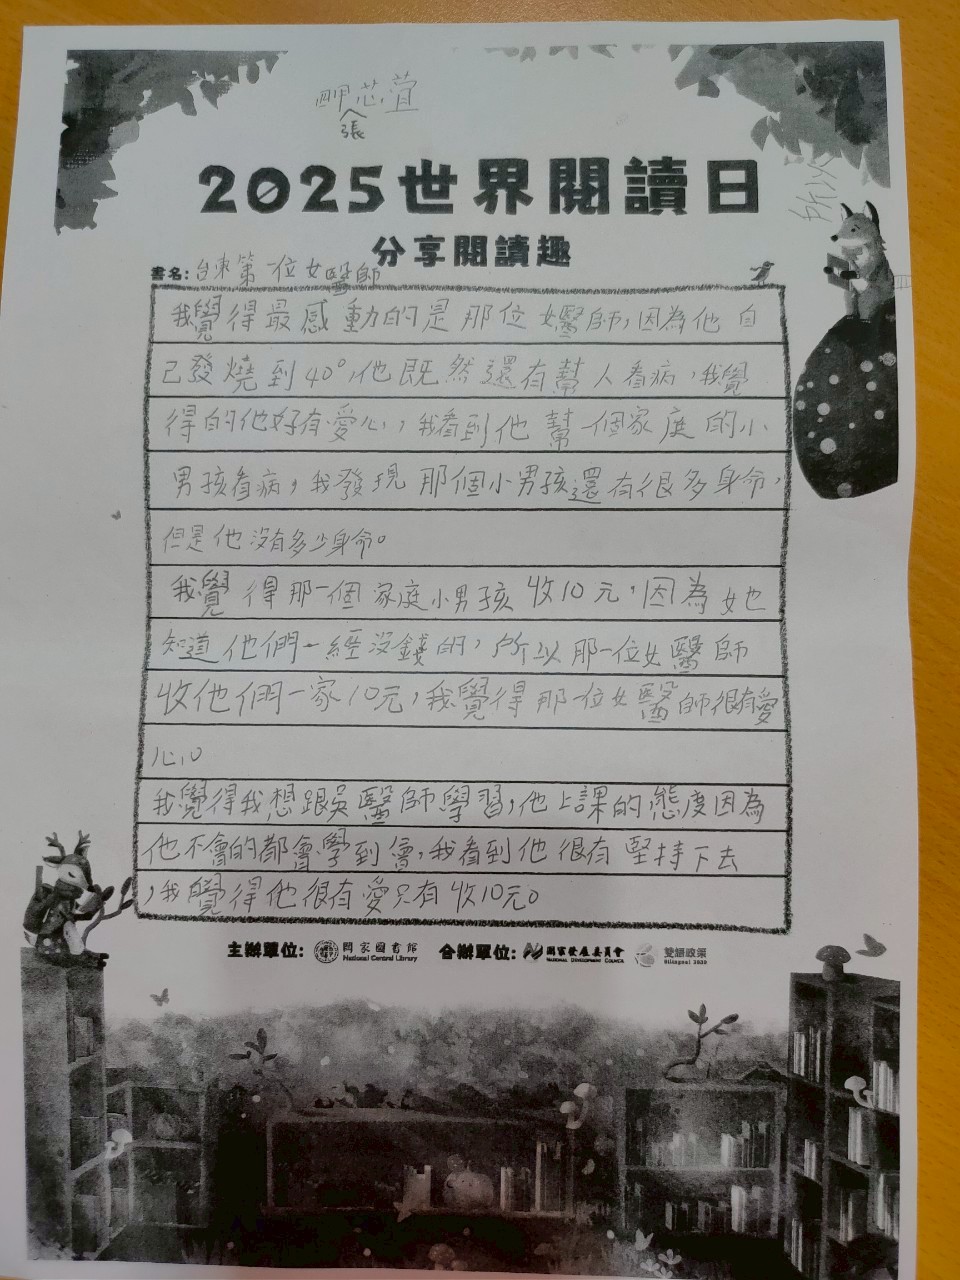 芯萱
張
2025世界閱讀日
分享閱讀趣
書名:台東第一位女醫師
我覺得最感動的是那位女醫師,因為他自
己發燒到40°,他既然還有幫人看病,我覺
得的他好有愛心,我看到他幫一個家庭的小
男孩看病,我發現那個小男孩還有很多身命,
但是他沒有多少身命。
我覺得那一個家庭小男孩收10元,因為她
知道他們一經沒錢的,所以那一位女醫師
收他們一家10元,我覺得那一位女醫師很有愛
心。
我覺得我想跟吳醫師學習,他上課的態度因為
他不會的都會學到會,我看到他很有堅持下去
,我覺得他很有愛只有收10元。
主辦單位: 國家圖書館 合辦單位: 國家發展委員會 雙語政策
National Central Library NATIONAL DEVELOPMENT COUNCIL Bilingual 2030